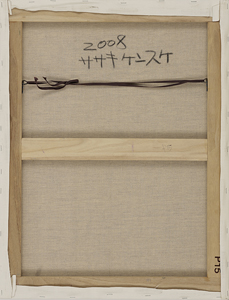 2008
ササキケンスケ
P15